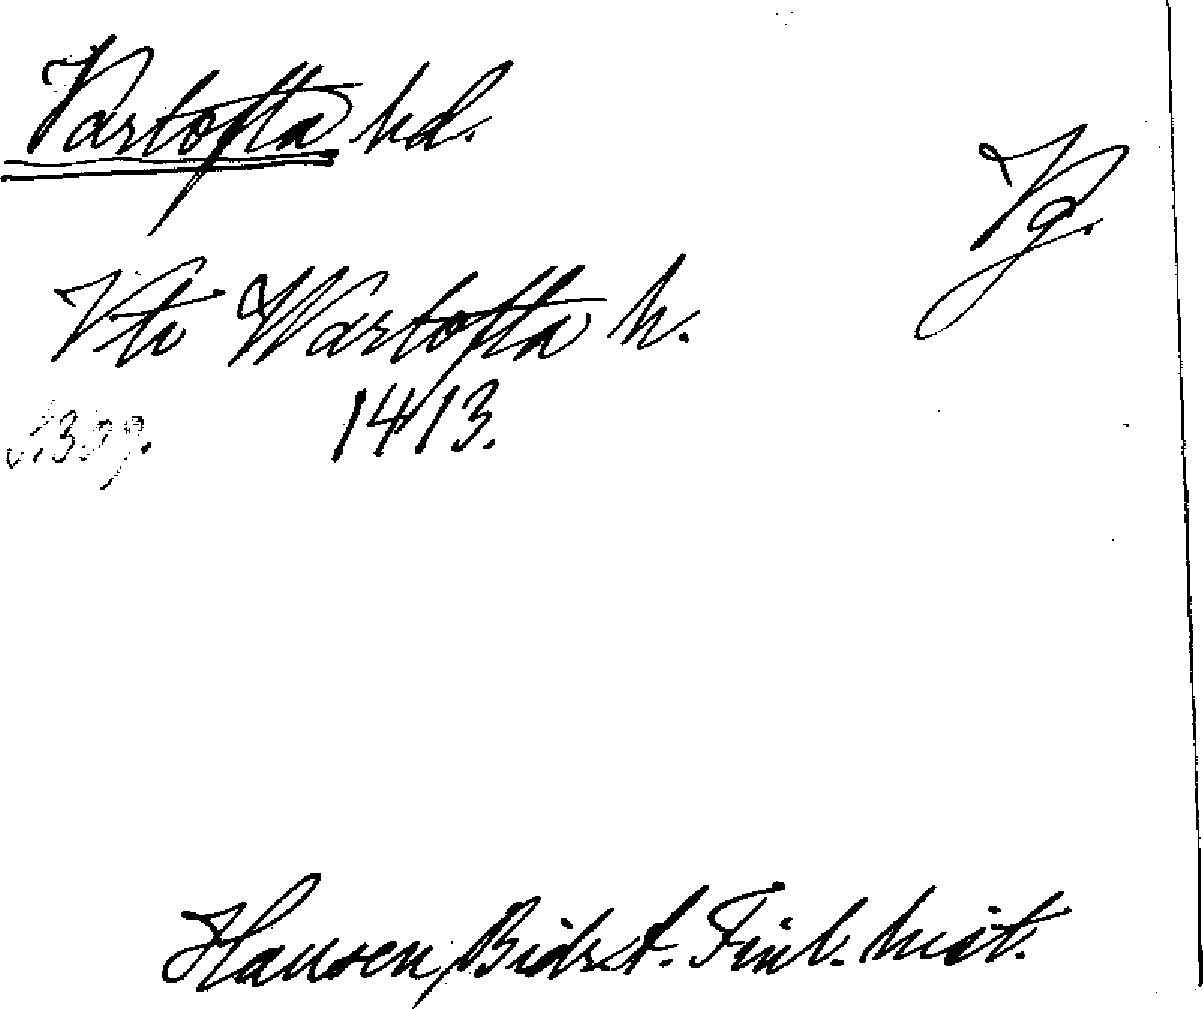 Vartofta hd.
Vg.
Vtv Wartofta h.
1413.
Hausen, Bidr. t. Finl. hist.